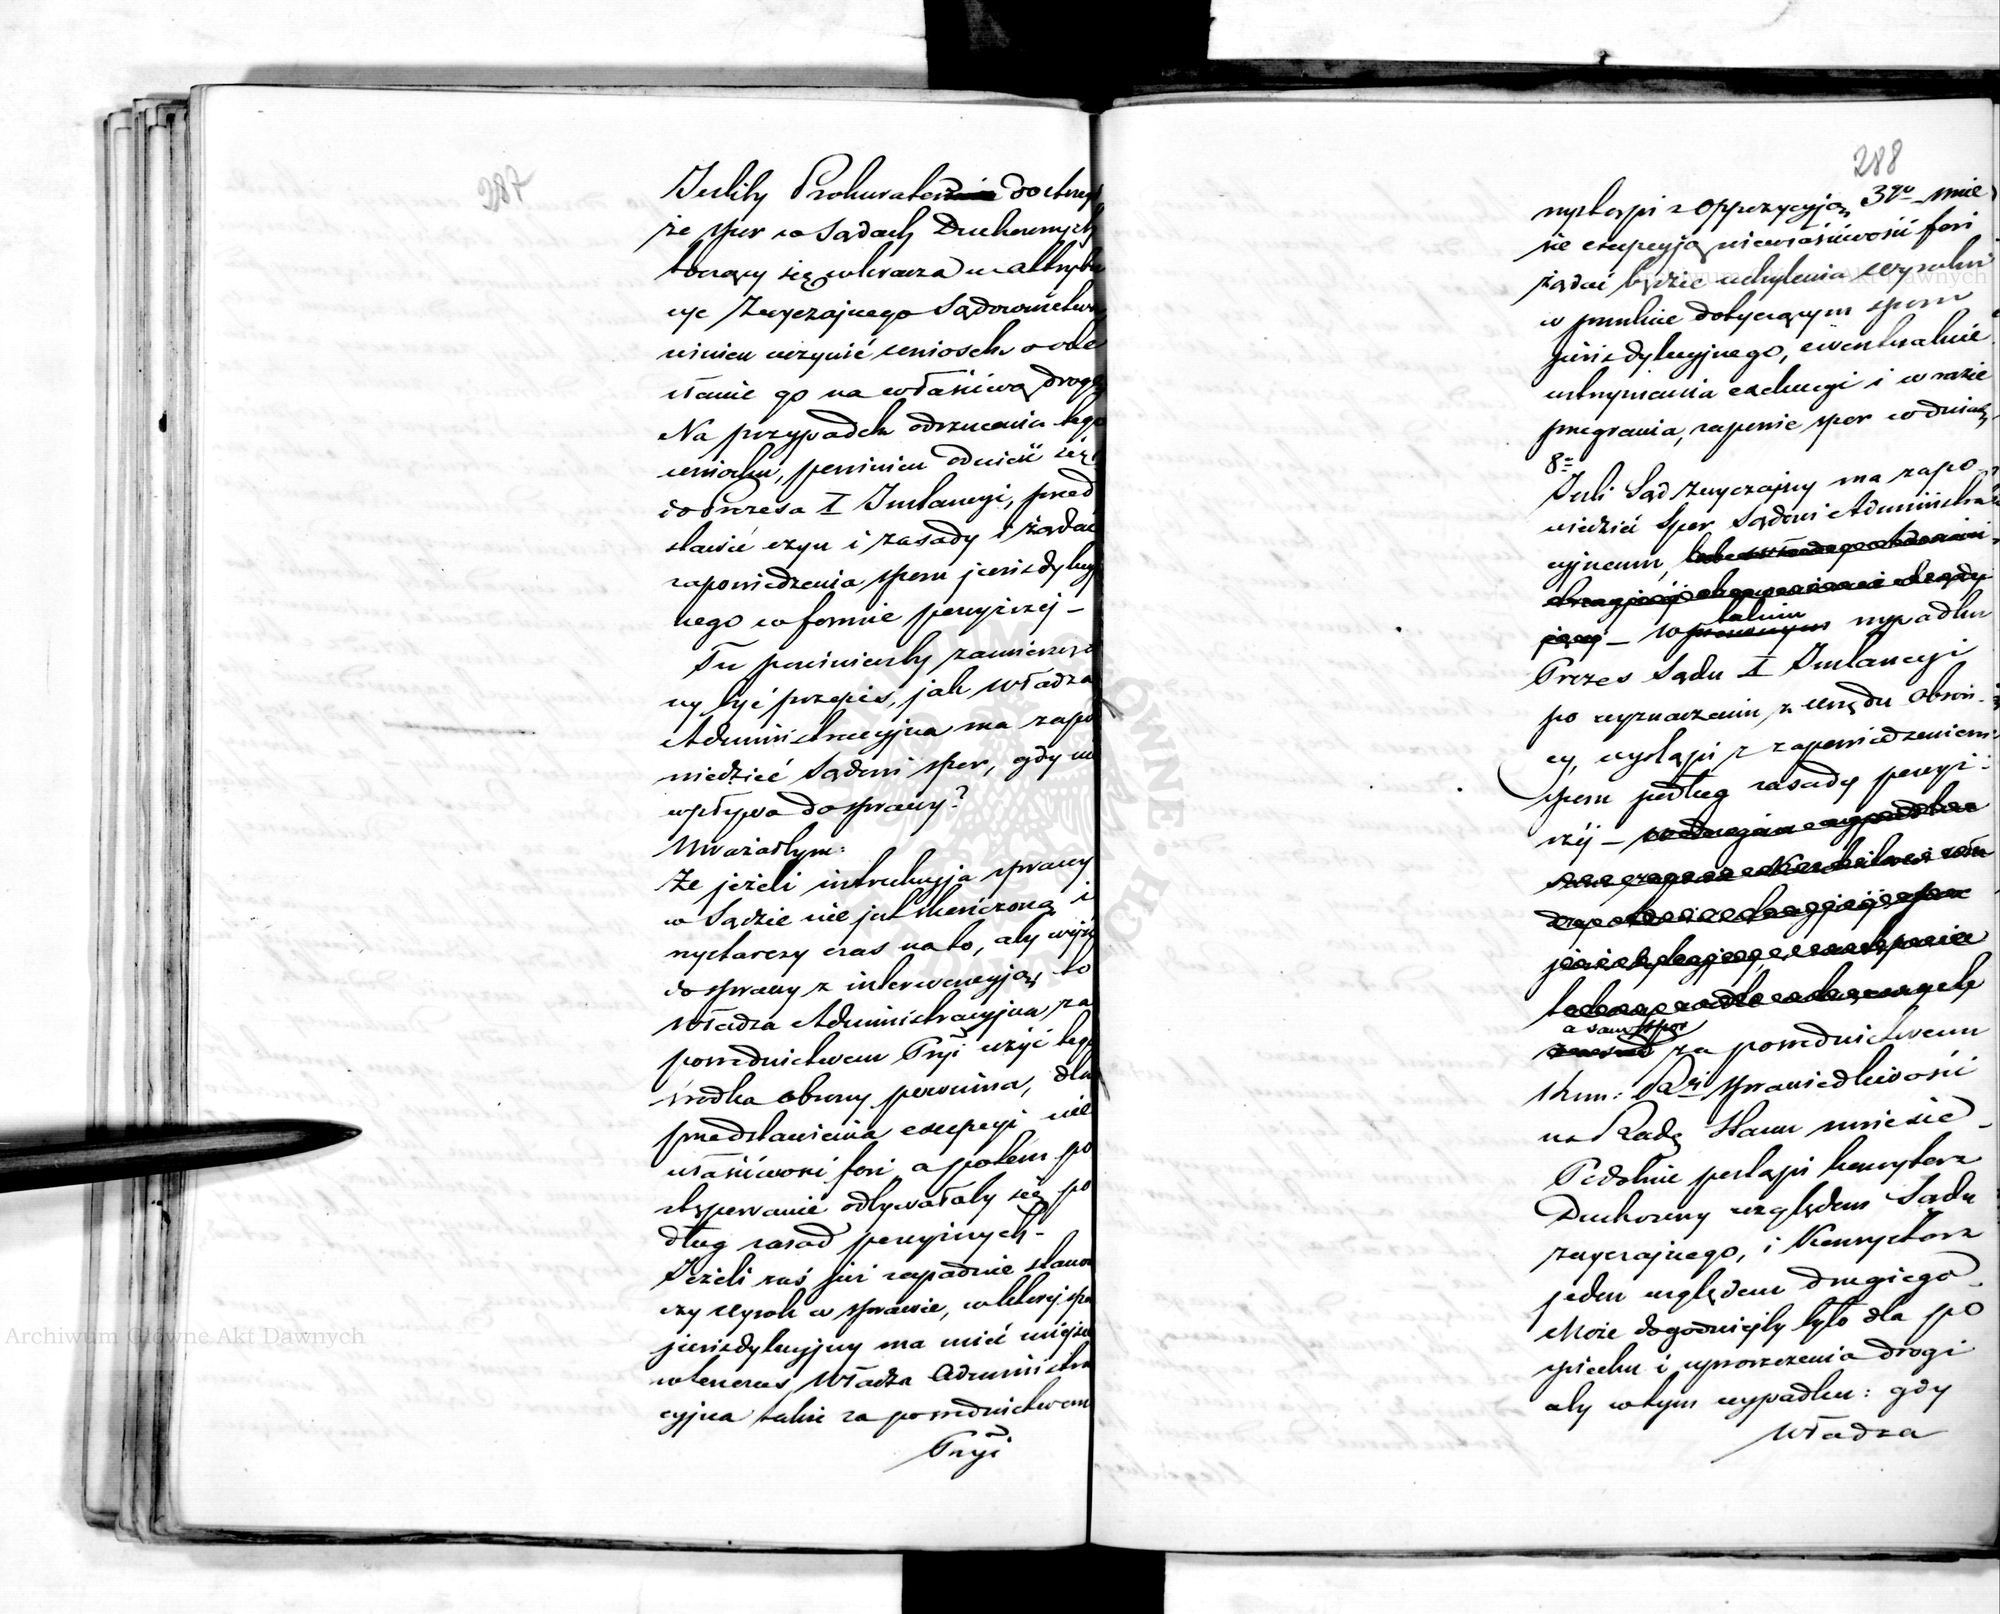 287
Jeśliby Prokurator dostrzegł
że spor w Sądach Duchownych
toczący się wkracza w attrybu
cye Zwyczajnego Sądownictwa,
winien uczynić wniosek o ode
słanie go na właściwą drogę
Na przypadek odrzucenia tego
wniosku, powinien odnieść się
do Prezesa I Instancyi, przed
stawić czyn i zasady i żądać
zapowiedzenia sporu jurisdykcyj
nego w formie powyższej –
Tu powinienby zamieszczo
ny być przepis, jak Władza
Administracyjna ma zapo
wiedzieć Sądowi spor, gdy nie
wpływa do sprawy?
Uważałbym:
Że jeżeli instrukcyja sprawy
w Sądzie nie jest skończoną i
wystarczy czas na to, aby wejść
do sprawy z interwencyją, to
Władza Administracyjna za
pośrednictwem Pryi użyć tego
środka obrony powinna, dla
przedstawienia excepcyi nie
właściwości fori, a potem po
stępowanie odbywałoby się po
dług zasad powyższych –
Jeżeli zaś już zapadnie stanow
czy wyrok w sprawie, w której spor
jurisdykcyjny ma mieć miejsce
wtenczas Władza Administra
cyjna także za pośrednictwem
Pryi
288
wystąpi z oppozycyją 3go wnie
sie excepcyją niewłaściwości fori
żądać będzie uchylenia wyroku
w punkcie dotyczącym sporu
jurisdykcyjnego, ewentualnie
wstrzymania exekucyi i w razie
przegrania, zapowie spor w dniach
8o
Jeśli Sąd zwyczajny ma zapo
wiedzieć Spor Sądowi Administra
cyjnemu,
– W takim wypadku
Prezes Sądu I Instancyi
po wyznaczeniu z urzędu Obroń
cy, wystąpi z zapowiedzeniem
sporu podług zasady powyż
széj –
a sam spor
za pośrednictwem
Kom: Rz. Sprawiedliwości
na Radę Stanu wniesie –
Podobnie postąpi Konsystorz
Duchowny względem Sądu
zwyczajnego, i Konsystorz
jeden względem drugiego –
Może dogodniejby było dla po
spiechu i uproszczenia drogi
aby w tym wypadku: gdy
Władza
Archiwum Główne Akt Dawnych